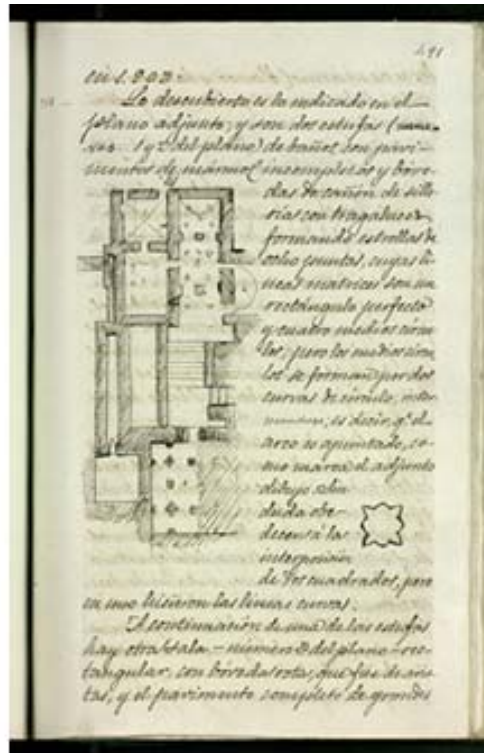 491
Lo descubierto es lo indicado en el
plano adjunto, y son dos estufas (nume-
ros 1 y 2 del plano) de baños, con pavi-
mentos de mármol incompletos y bóve-
das de cañón de sille-
rías con tragaluces
formando estrellas de
ocho puntas, cuyas lí-
neas matrices son un
rectángulo perfecto
y cuatro medios círcu-
los; pero los medios círcu
los se forman por dos
curvas de círculo, inter
es decir, q.e el
arco es apuntado, co-
mo marca el adjunto
dibujo sin
duda obe-
decen á la
interposición
de dos cuadrados, pero
en uno hicieron las líneas curvas.
A continuación de una de las estufas
hay otra sala - número 3 del plano - rec-
tangular, con bóveda rota, que fue de aris-
tas, y el pavimento completo de grandes